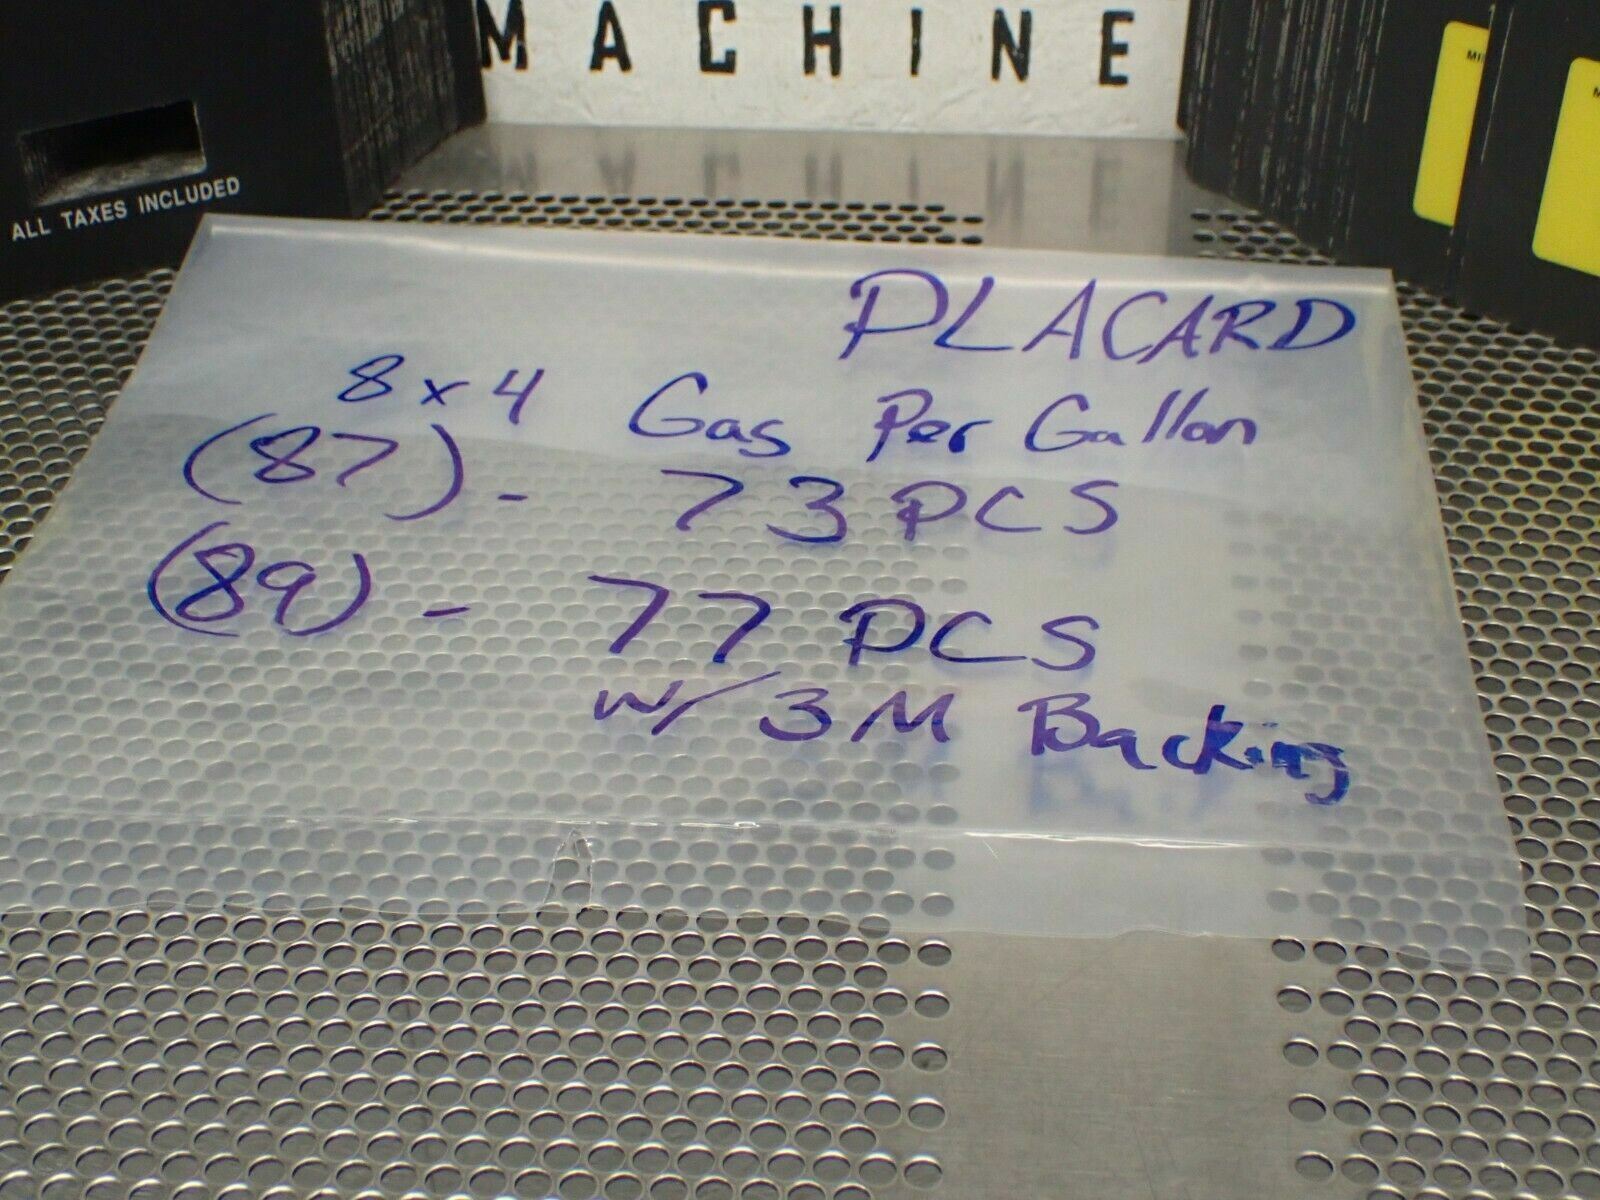 MACHINE
ALL TAXES INCLUDED
PLACARD
8x4 Gas Per Gallon
(87) - 73 PCS
(89) - 77 PCS
w/ 3M Backing